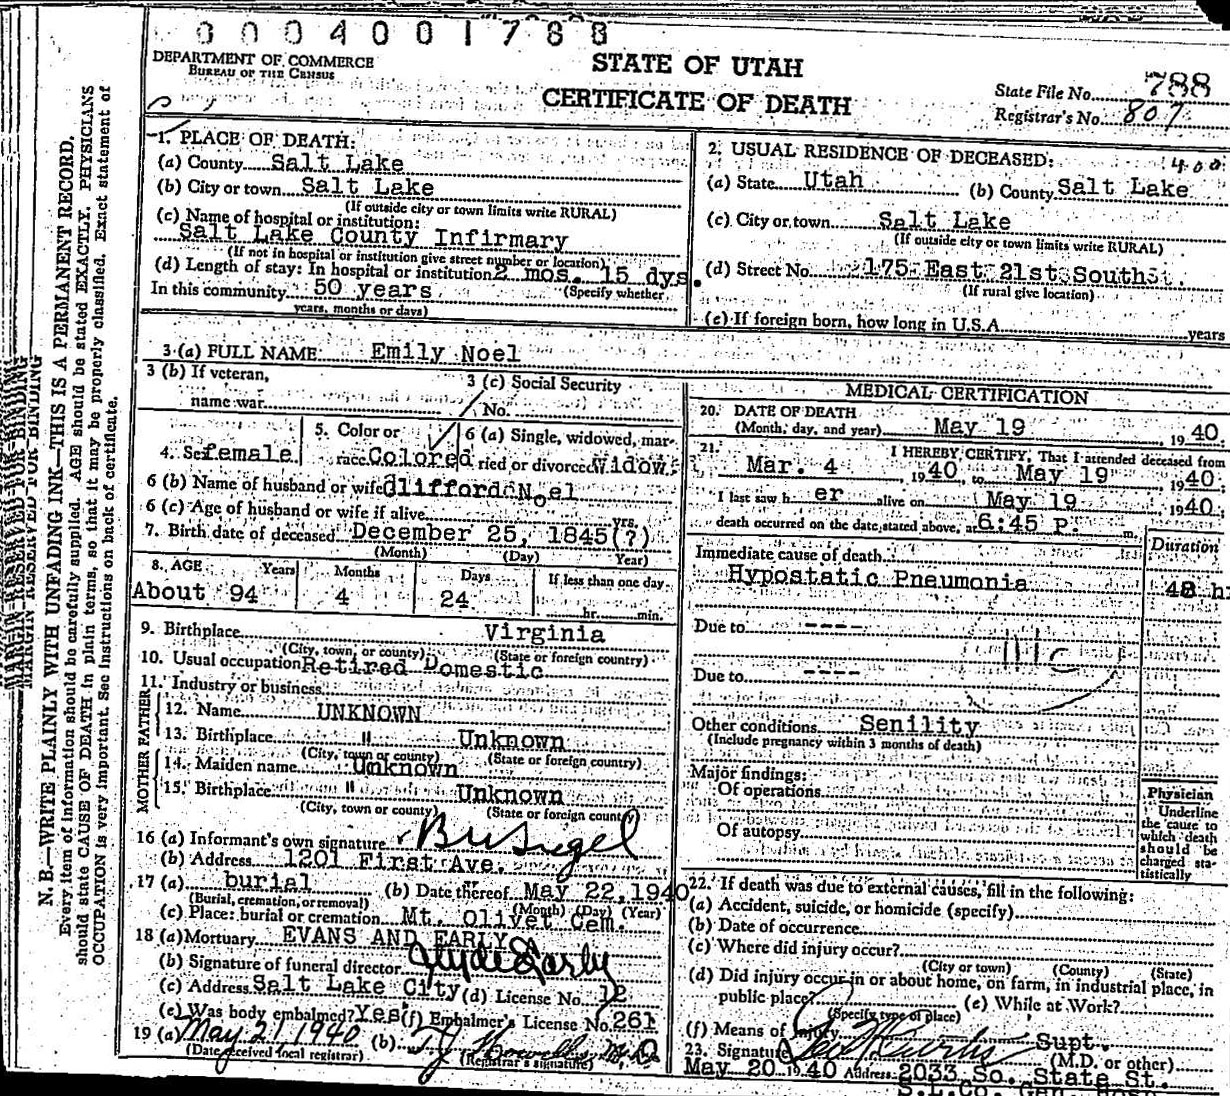 0004001788
DEPARTMENT OF COMMERCE
BUREAU OF THE CENSUS
STATE OF UTAH
CERTIFICATE OF DEATH
State File No. 788
Registrar's No. 807
1. PLACE OF DEATH:
(a) County Salt Lake
(b) City or town Salt Lake
(If outside city or town limits write RURAL)
(c) Name of hospital or institution:
Salt Lake County Infirmary
(If not in hospital or institution give street number or location)
(d) Length of stay: In hospital or institution 2 mos. 15 dys.
In this community 50 years (Specify whether
years, months or days)
2. USUAL RESIDENCE OF DECEASED: 400
(a) State Utah (b) County Salt Lake
(c) City or town Salt Lake
(If outside city or town limits write RURAL)
(d) Street No. 175 East 21st South St.
(If rural give location)
(e) If foreign born, how long in U.S.A. years
3 (a) FULL NAME Emily Noel
3 (b) If veteran,
name war
3 (c) Social Security
No.
4. Sex female
5. Color or
race Colored
6 (a) Single, widowed, mar-
ried or divorced Widow
6 (b) Name of husband or wife Clifford Noel
6 (c) Age of husband or wife if alive yrs.
7. Birth date of deceased December 25, 1845(?)
(Month) (Day) Year)
8. AGE Years Months Days If less than one day
About 94 4 24 hr. min.
9. Birthplace Virginia
(City, town, or county) (State or foreign country)
10. Usual occupation Retired Domestic
11. Industry or business
FATHER
12. Name UNKNOWN
13. Birthplace " Unknown
(City, town or county) (State or foreign country)
MOTHER
14. Maiden name Unknown
15. Birthplace " Unknown
(City, town or county) (State or foreign county)
16 (a) Informant's own signature
(b) Address 1201 First Ave.
17 (a) burial (b) Date thereof May 22, 1940
(Burial, cremation, or removal) (Month) (Day) (Year)
(c) Place: burial or cremation Mt. Olivet Cem.
18 (a) Mortuary EVANS AND EARLY
(b) Signature of funeral director
(c) Address Salt Lake City (d) License No. 12
(e) Was body embalmed? Yes (f) Embalmer's License No. 261
19 (a) May 21, 1940 (b)
(Date received local registrar) (Registrar's signature)
MEDICAL CERTIFICATION
20. DATE OF DEATH
(Month, day, and year) May 19, 1940
21. I HEREBY CERTIFY, That I attended deceased from
Mar. 4, 1940, to May 19, 1940;
I last saw her alive on May 19, 1940;
death occurred on the date stated above, at 6:45 P. m.
Duration
Immediate cause of death
Hypostatic Pneumonia 48 h
Due to ----
Due to ----
Other conditions Senility
(Include pregnancy within 3 months of death)
Major findings:
Of operations
Of autopsy
Physician
Underline
the cause to
which death
should be
charged sta-
tistically
22. If death was due to external causes, fill in the following:
(a) Accident, suicide, or homicide (specify)
(b) Date of occurrence
(c) Where did injury occur?
(City or town) (County) (State)
(d) Did injury occur in or about home, on farm, in industrial place, in
public place? (e) While at Work?
(Specify type of place)
(f) Means of Injury
23. Signature Supt.
(M.D. or other)
May 20 1940 Address 2033 So. State St.
S.L.Co. Gen. Hosp
MARGIN RESERVED FOR BINDING
N. B.—WRITE PLAINLY WITH UNFADING INK—THIS IS A PERMANENT RECORD.
Every item of information should be carefully supplied. AGE should be stated EXACTLY. PHYSICIANS
should state CAUSE OF DEATH in plain terms, so that it may be properly classified. Exact statement of
OCCUPATION is very important. See Instructions on back of certificate.